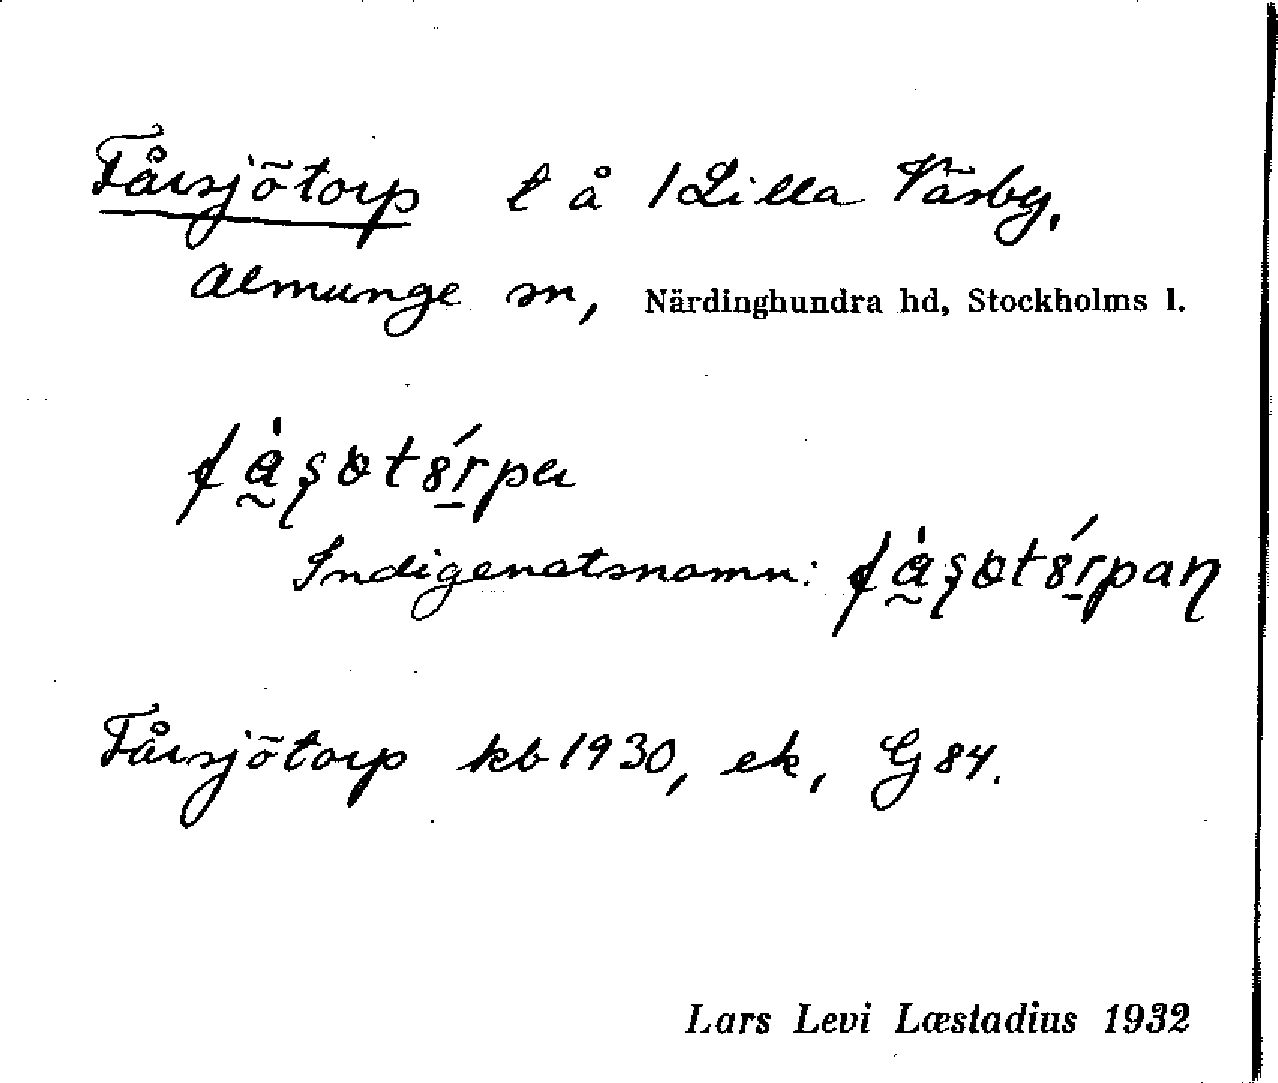 Fårsjötorp l å /Lilla Väsby,
Almunge sn, Närdinghundra hd, Stockholms l.
Indigenatsnamn:
Fårsjötorp kb 1930, ek, G 84.
Lars Levi Læstadius 1932